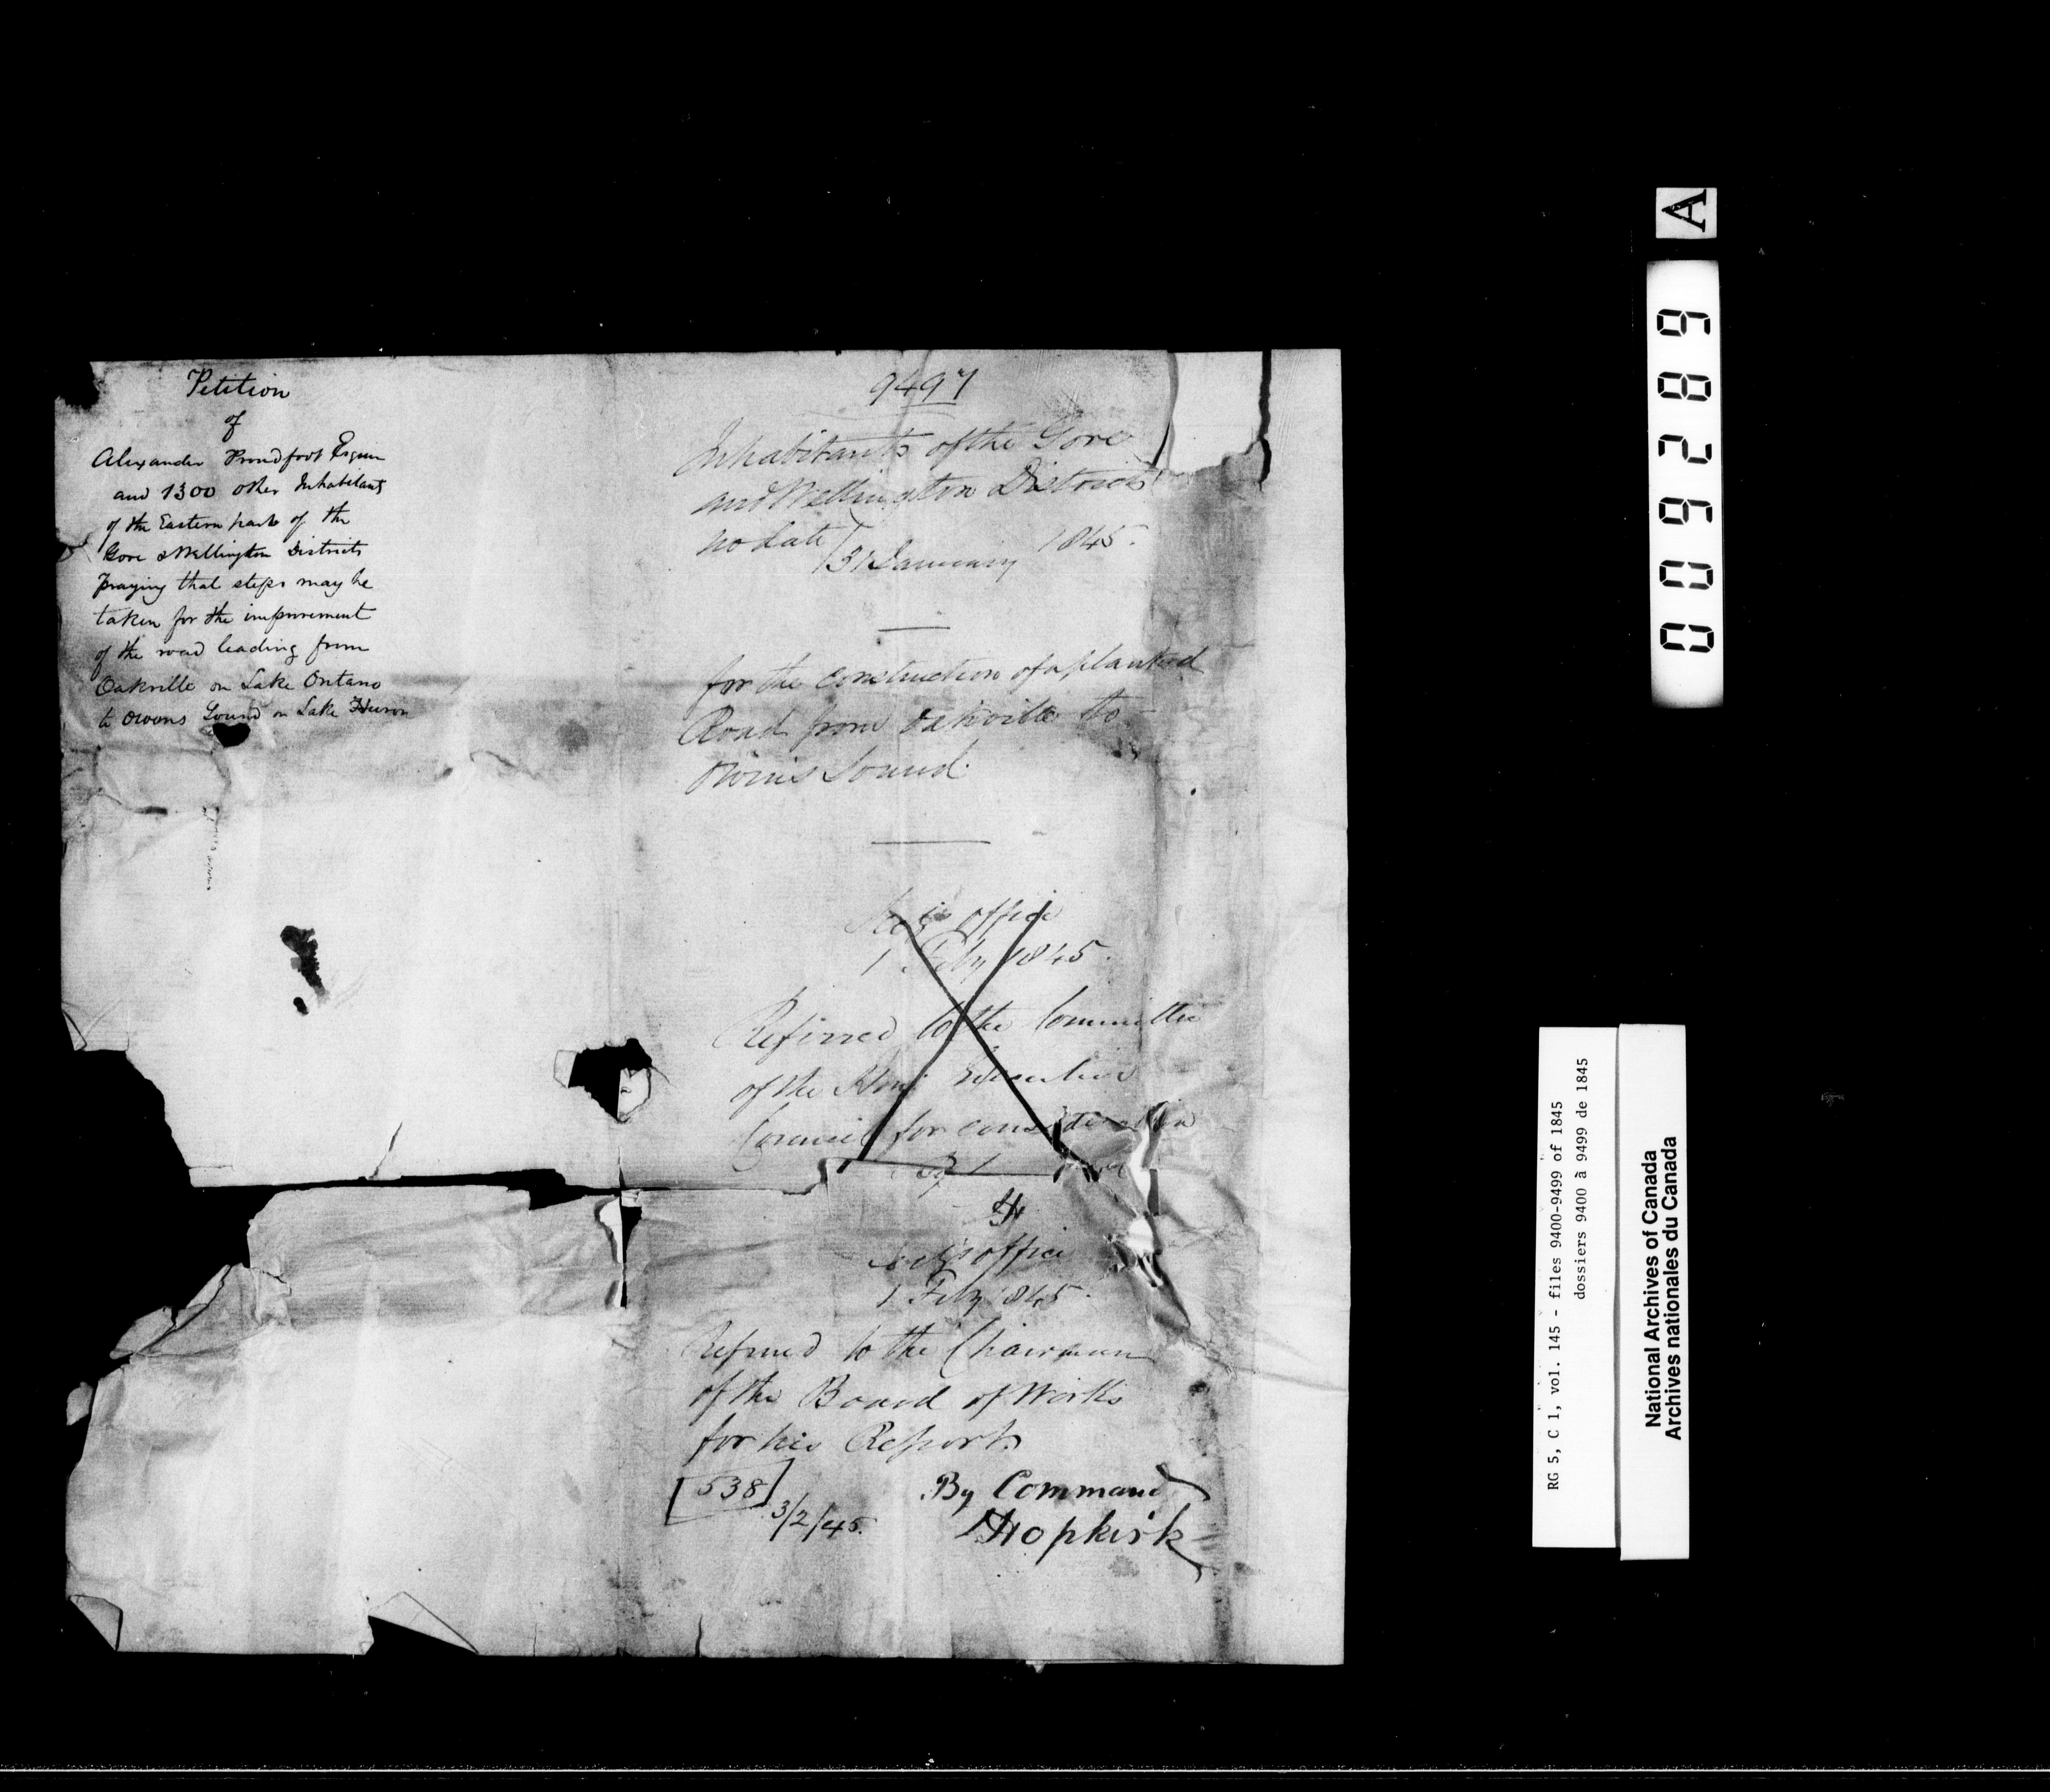 Petition
of
Alexander Proudfoot Esquire
and 1300 other Inhabitants
of the Eastern parts of the
Gore & Wellington Districts
Praying that steps may be
taken for the improvement
of the road leading from
Oakville on Lake Ontario
to Owens Sound on Lake Huron
9497
Inhabitants of the Gore
and Wellington Districts
no date / 31 January 1845.
for the construction of a planked
Road from Oakville to
Owens Sound.
Secy's office
1 Feby 1845.
Referred to the Committee
of the Hon: Executive
Council for consideration
By
H
Secy's office
1 Feby 1845.
Referred to the Chairman
of the Board of Works
for his Report
[538]
3/2/45.
By Command
JHopkirk
A
009289
RG 5, C 1, vol. 145 - files 9400-9499 of 1845
dossiers 9400 à 9499 de 1845
National Archives of Canada
Archives nationales du Canada